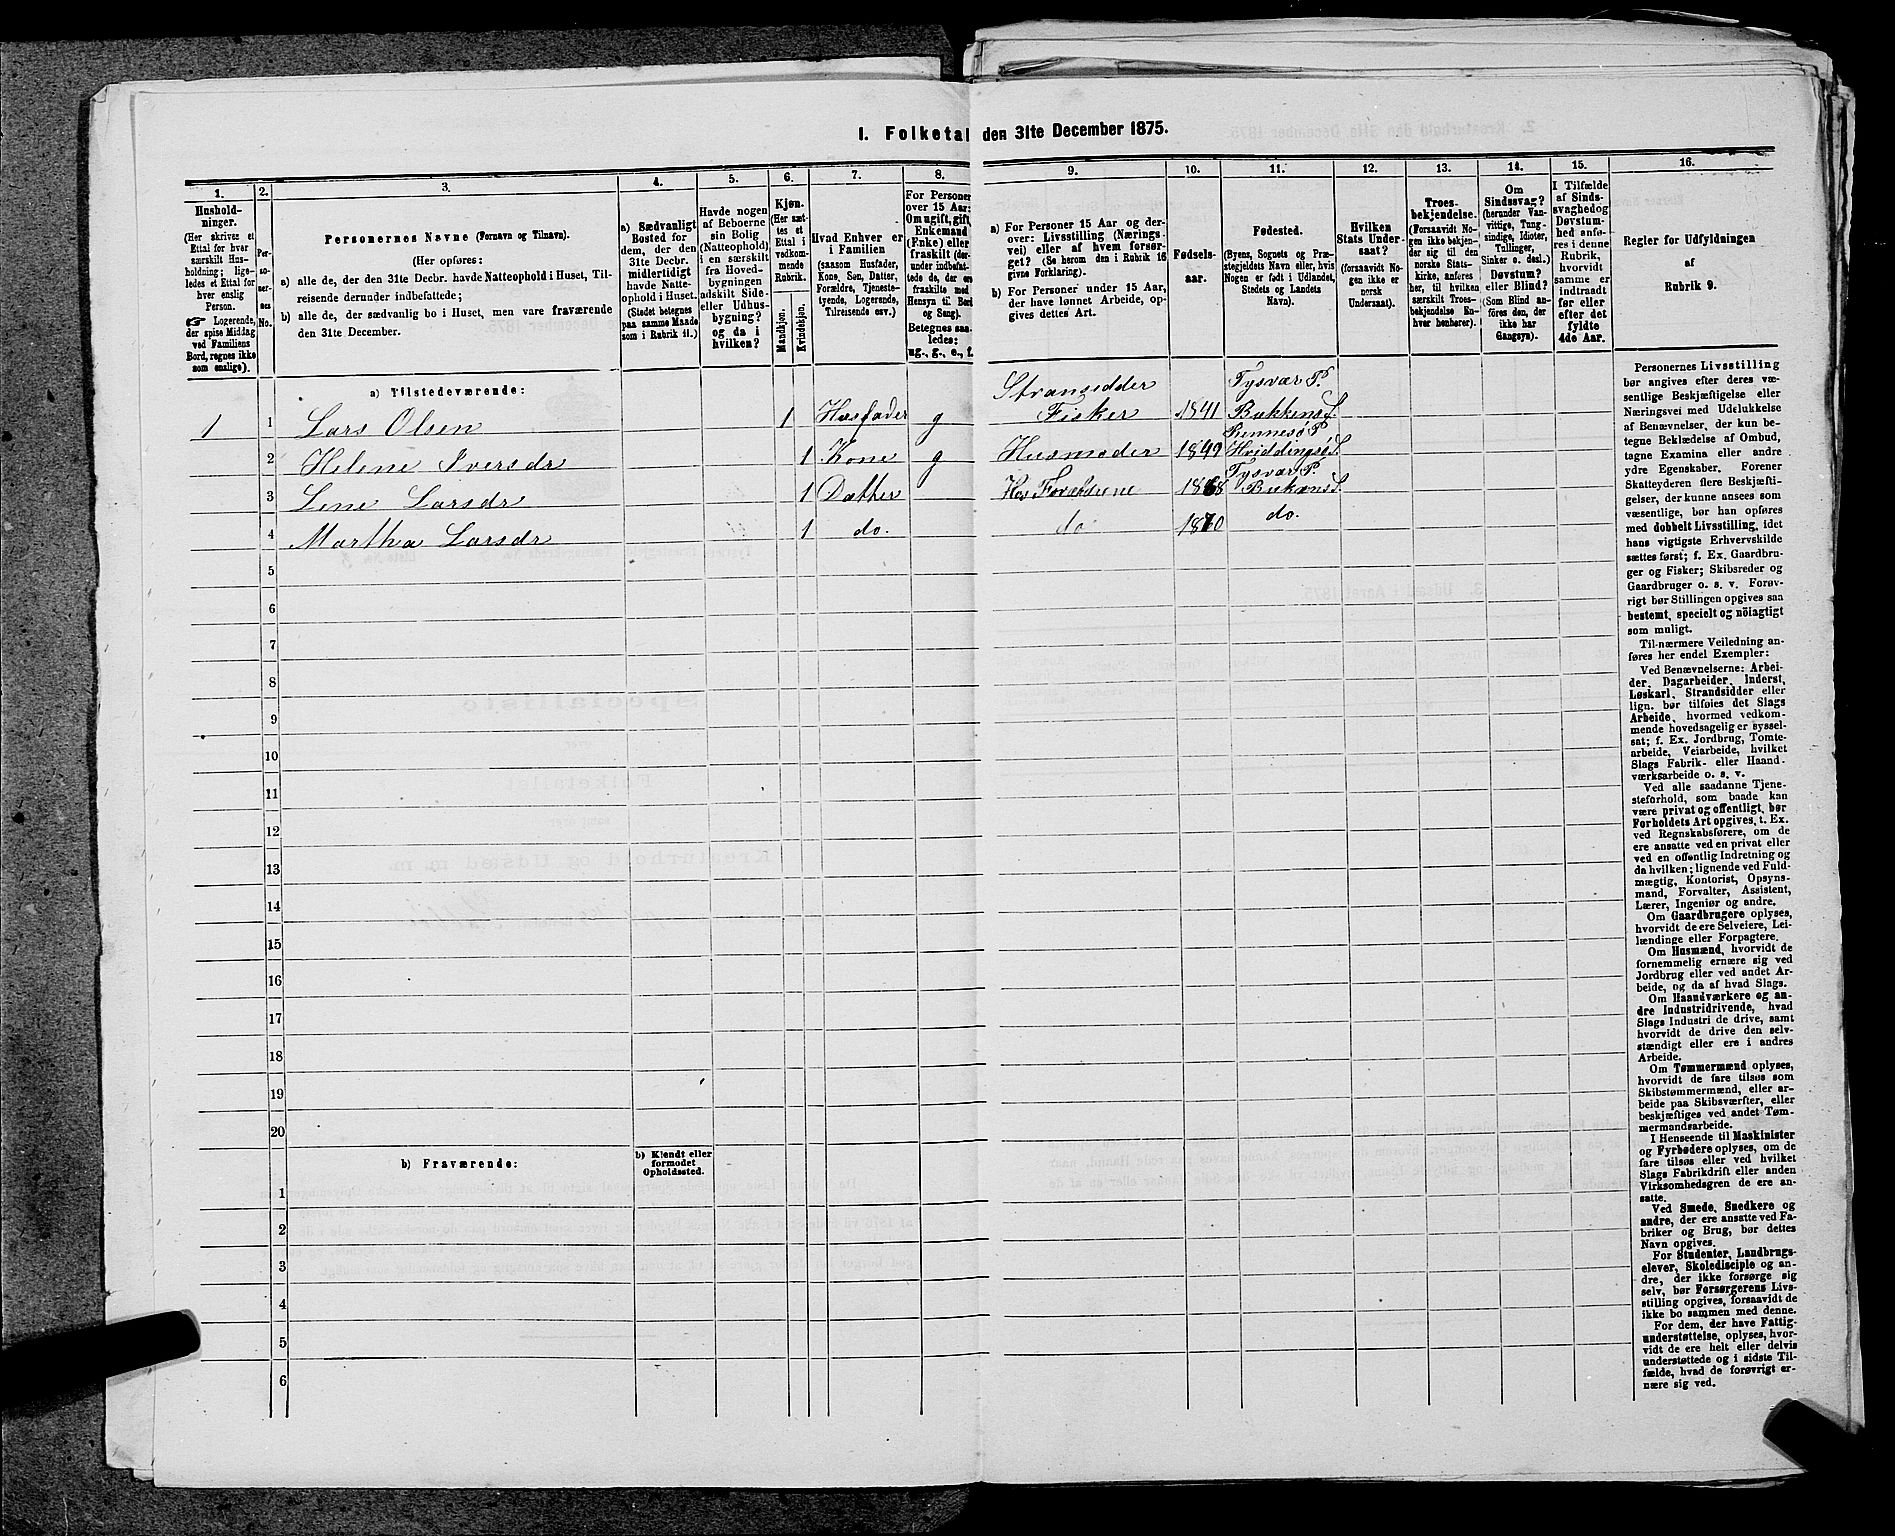 1. Folketal den 31te December 1875.
1.
2.
3.
4.
5.
6.
7.
8.
9.
10.
11.
12.
13.
14.
15.
16.
Hushold-
ninger.
(Her skrives et
Ettal for hver
særskilt Hus-
holdning; lige-
ledes et Ettal for
hver enslig
Person.
☞ Logerende,
der spise Middag
ved Familiens
Bord, regnes ikke
som enslige).
Per-
so-
ner-
nes
No.
Personernes Navne (Fornavn og Tilnavn).
(Her opføres:
a) alle de, der den 31te Decbr. havde Natteophold i Huset, Til-
reisende derunder indbefattede;
b) alle de, der sædvanlig bo i Huset, men vare fraværende
den 31te December.
a) Sædvanligt
Bosted for
dem, der den
31te Decbr.
midlertidigt
havde Natte-
ophold i Huset.
(Stedet betegnes
paa samme Maade
som i Rubrik 11.)
Havde nogen
af Beboerne
sin Bolig
(Natteophold)
i en særskilt
fra Hoved-
bygningen
adskilt Side-
eller Udhus-
bygning?
og da i
hvilken?
Kjøn.
(Her sæt-
tes et
Ettal i
vedkom-
mende
Rubrik.
Mandkjøn.
Kvindekjøn.
Hvad Enhver er
i Familien
(saasom Husfader,
Kone, Søn, Datter,
Forældre, Tjeneste-
tyende, Logerende,
Tilreisende osv.
For Personer
over 15 Aar:
Om ugift, gift,
Enkemand
(Enke) eller
fraskilt (der-
under indbefat-
tede de, der ere
fraskilte med
Hensyn til Bord
og Seng).
Betegnes saa-
ledes:
ug., g., e., f.
a) For Personer 15 Aar og der-
over: Livsstilling (Nærings-
vei) eller af hvem forsør-
get? (Se herom den i Rubrik 16
givne Forklaring).
b) For Personer under 15 Aar,
der have lønnet Arbeide, op-
gives dettes Art.
Fødsels-
aar.
Fødested.
(Byens, Sognets og Præ-
stegjeldets Navn eller, hvis
Nogen er født i Udlandet,
Stedets og Landets
Navn).
Hvilken
Stats Under-
saat?
(forsaavidt No-
gen ikke er
norsk
Undersaat).
Troes-
bekjendelse.
(Forsaavidt No-
gen ikke bekjen-
der sig til den
norske Stats-
kirke, anføres
her, til hvilken
særskilt Troes-
bekjendelse En-
hver henhører).
Om
Sindssvag?
(herunder Van-
vittige, Tung-
sindige, Idioter,
Tullinger,
Sinker o. desl.).
Døvstum?
eller Blind?
(Som Blind an-
føres den, der
ikke har
Gangsyn).
I Tilfælde
af Sinds-
svaghed og
Døvstum-
hed anfø-
res i denne
Rubrik,
hvorvidt
samme er
indtraadt
før eller
efter det
fyldte
4de Aar.
Regler for Udfyldningen
af
Rubrik 9.
a) Tilstedeværende:
1 1 Lars Olsen 1 Husfader g Stransidder Fisker 1841 Tysvær P. Bukkens S.
2 Helene Iversdr 1 Kone g Husmoder 1849 Rennesø P Hviddingsø S.
3 Lene Larsdr 1 Datter Hos Forældrene 1868 Tysvær P. Bukens S.
4 Martha Larsdr 1 do. do 1870 do.
5
6
7
8
9
10
11
12
13
14
15
16
17
18
19
20
b) Fraværende:
b) Kjendt eller
formodet
Opholdssted.
1
2
3
4
5
6
Personernes Livsstilling
bør angives efter deres væ-
sentlige Beskjæftigelse eller
Næringsvei med Udelukkelse
af Benævnelser, der kun be-
tegne Beklædelse af Ombud,
tagne Examina eller andre
ydre Egenskaber. Forener
Skatteyderen flere Beskjæfti-
gelser, der kunne ansees som
væsentlige, bør han opføres
med dobbelt Livsstilling, idet
hans vigtigste Erhvervskilde
sættes først; f. Ex. Gaardbru-
ger og Fisker; Skibsreder og
Gaardbruger o. s. v. Forøv-
rigt bør Stillingen opgives saa
bestemt, specielt og nöiagtigt
som muligt.
Til nærmere Veiledning an-
føres her endel Exempler:
Ved Benævnelserne: Arbei-
der, Dagarbeider, Inderst,
Løskarl, Strandsidder eller
lign. bør tilføies det Slags
Arbeide, hvormed vedkom-
mende hovedsagelig er syssel-
sat; f. Ex. Jordbrug, Tomte-
arbeide, Veiarbeide, hvilket
Slags Fabrik- eller Haand-
værksarbeide o. s. v.
Ved alle saadanne Tjene-
steforhold, som baade kan
være privat og offentligt, bør
Forholdets Art opgives, t. Ex.
ved Regnskabsførere, om de
ere ansatte ved en privat eller
ved en offentlig Indretning og
da hvilken; lignende ved Fuld-
mægtig, Kontorist, Opsyns-
mand, Forvalter, Assistent,
Lærer, Ingeniør og andre.
Om Gaardbrugere oplyses,
hvorvidt de ere Selveiere, Lei-
lændinge eller Forpagtere.
Om Husmænd, hvorvidt de
fornemmelig ernære sig ved
Jordbrug eller ved andet Ar-
beide, og da af hvad Slags.
Om Haandværkere og an-
dre Industridrivende, hvad
Slags Industri de drive, samt
hvorvidt de drive den selv-
stændigt eller ere i andres
Arbeide.
Om Tømmermænd oplyses,
hvorvidt de fare tilsøs som
Skibstømmermænd, eller ar-
beide paa Skibsværfter, eller
beskjæftiges ved andet Tøm-
mermandsarbeide.
I Henseende til Maskinister
og Fyrbødere oplyses, om de
fare tilsøs eller ved hvilket
Slags Fabrikdrift eller anden
Virksomhedsgren de ere an-
satte.
Ved Smede, Snedkere og
andre, der ere ansatte ved Fa-
briker og Brug, bør dettes
Navn opgives.
For Studenter, Landbrugs-
elever, Skoledisciple og an-
dre, der ikke forsørge sig
selv, bør Forsørgerens Livs-
stilling opgives, forsaavidt de
ikke bo sammen med denne.
For dem, der have Fattig-
understøttelse, oplyses, hvor-
vidt de ere helt eller delvis
understøttede og i sidste Til-
fælde, hvad de forøvrigt er-
nære sig ved.